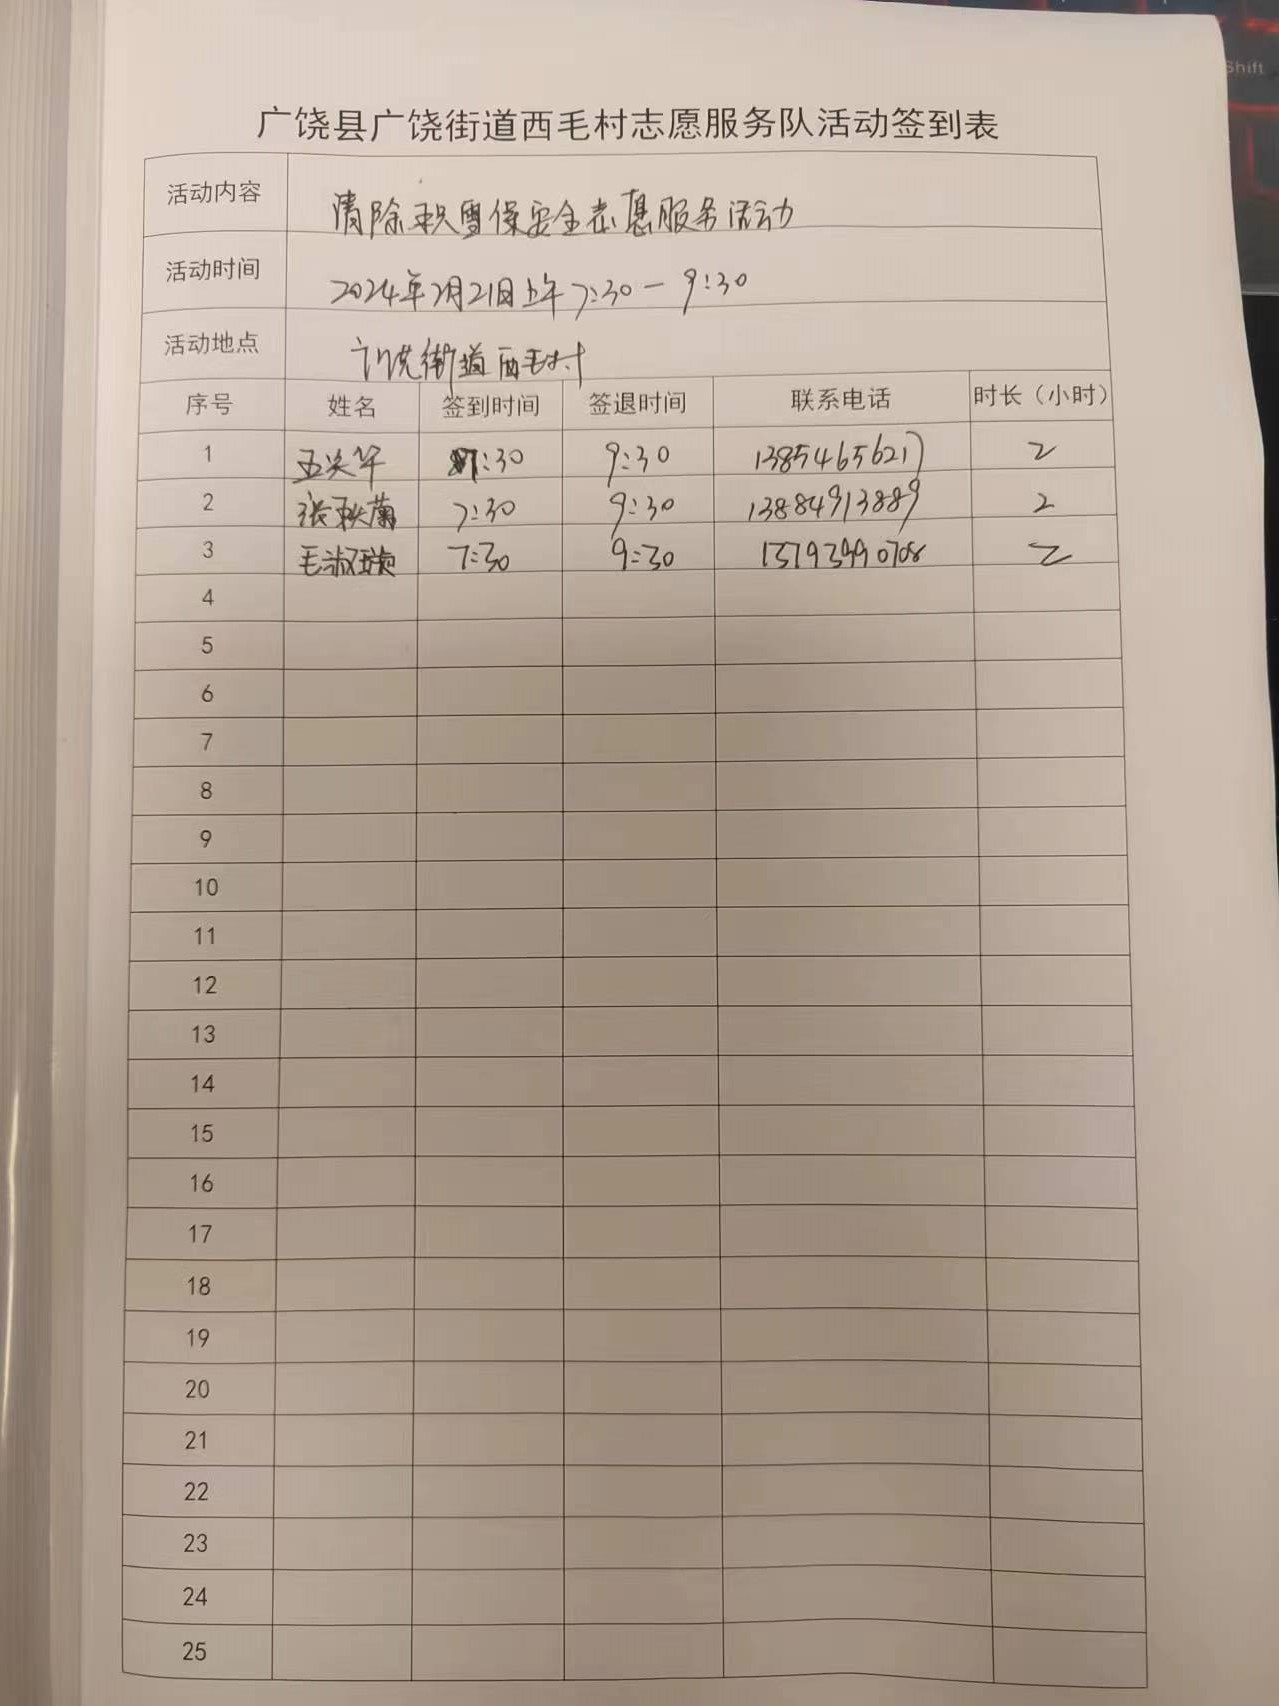 Shift
广饶县广饶街道西毛村志愿服务队活动签到表
活动内容 清除积雪保安全志愿服务活动
活动时间 2024年2月21日上午7:30-9:30
活动地点 广饶街道西毛村
序号 姓名 签到时间 签退时间 联系电话 时长（小时）
1 7:30 9:30 13854656217 2
2 张秋菊 7:30 9:30 13884913889 2
3 毛淑 7:30 9:30 13793990708 2
4
5
6
7
8
9
10
11
12
13
14
15
16
17
18
19
20
21
22
23
24
25